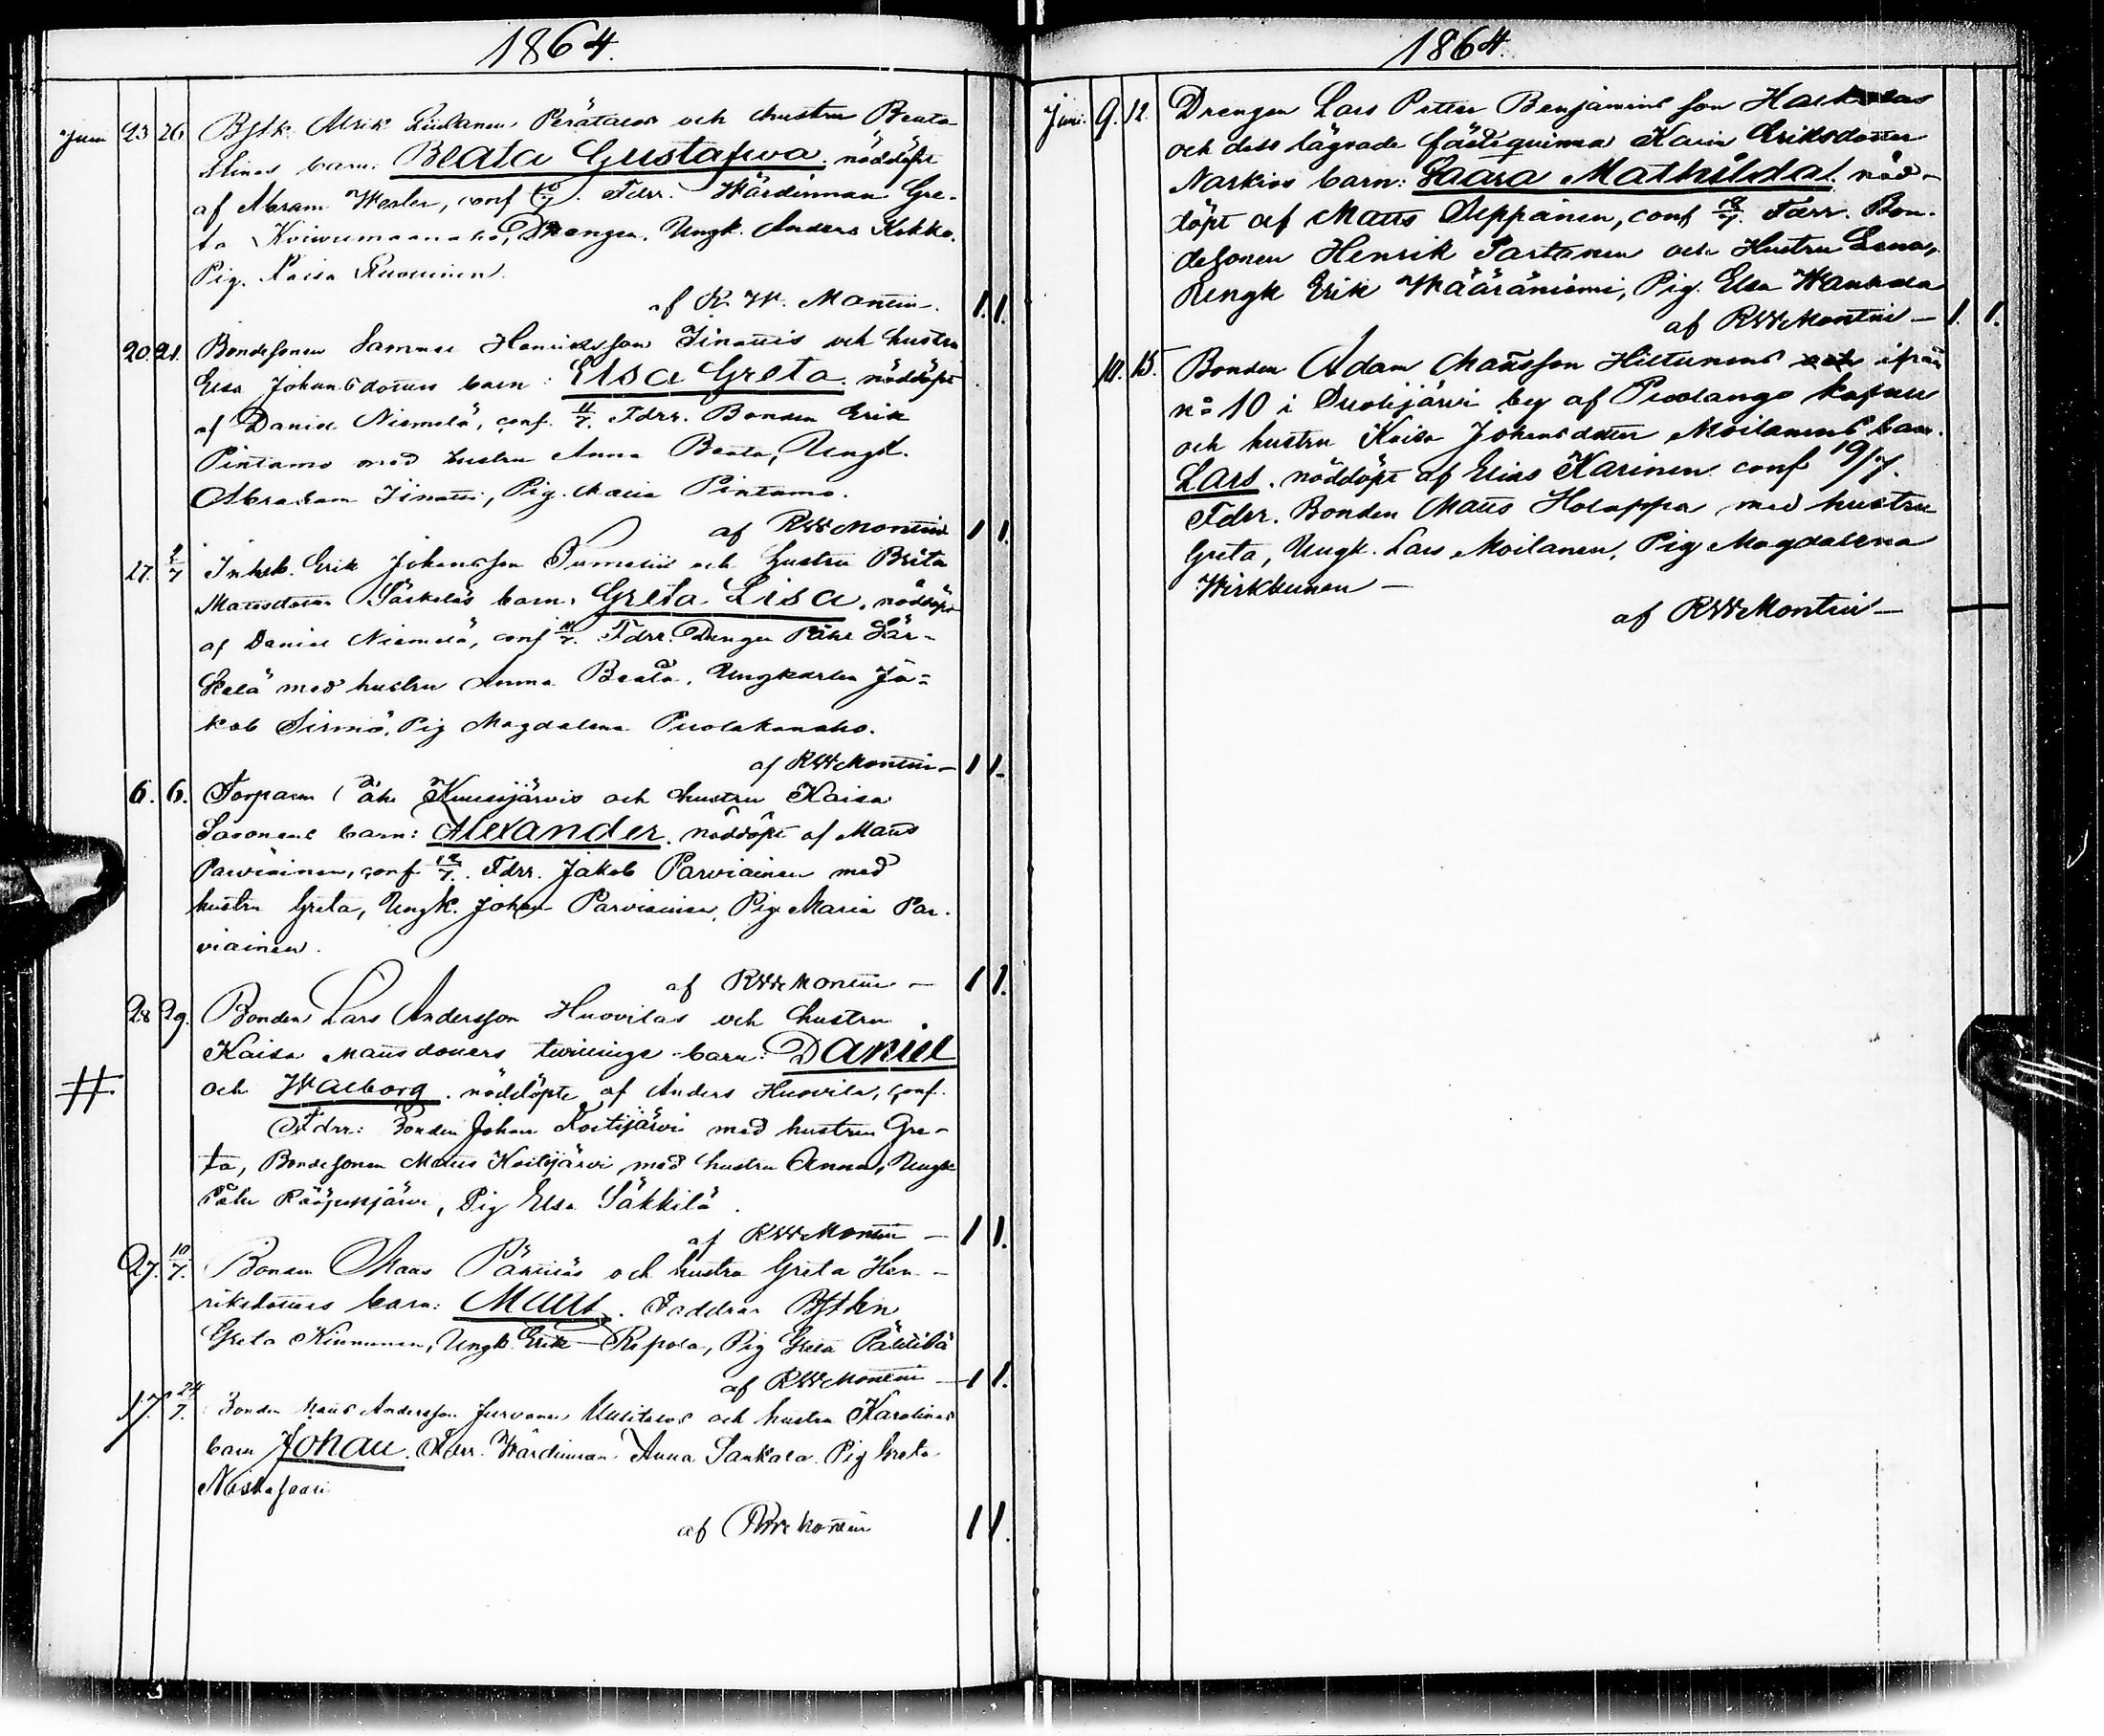 1864.
Juni 23 26 Bstk. Ulrik Perätalos och hustru Beata
Stinas barn: Beata Gustafwa. nöddöpt
af Abram Wesler, conf 10/7. Fdrr. Wärdinnan Gre-
ta Drengen, Ungk. Anders Kokko.
Pig. Kaisa
af R. W. Montin. 1. 1.
20. 21. Bondesonen Samuel Henriksson Iinattis och hustru
Elsa Johansdotters barn: Elsa Greta. nöddöpt
af Daniel Niemelä, conf. 11/7. Fdrr. Bonden Erik
Pintamo med hustru Anna Beata, Ungk.
Abraham Iinatti, Pig. Maria Pintamo.
af RWMontin 1 1.
27. 2/7 Inhsk. Erik Johansson och hustru Brita
Mattsdotter Särkeläs barn: Greta Lisa. nöddöpt
af Daniel Niemelä, conf 11/7. Fdrr. Drengen Påhl Sär-
kelä med hustru Anna Beata. Ungkarlen Ja=
kob Sirniö, Pig Magdalena Puolakanaho.
af RWMontin- 1 1.
6. 6. Torparen Påhl Kuusijärvis och hustru Kaisa
Sasonens barn: Alexander. nöddöpt af Matts
Parviainen, conf 12/7. Fdrr. Jakob Parviainen med
hustru Greta, Ungk. Johan Parviainen, Pig Maria Par-
viainen.
af RWMontin - 1 1.
28 29. Bonden Lars Andersson Huovilas och hustru
Kaisa Mattsdotters twillinge barn: Daniel
# och Walborg. nöddöpte af Anders Huovila, conf.
Fdrr: Bonden Johan Koitijärvi med hustru Gre-
ta, Bondesonen Matts Koitijärvi med hustru Anna, Ungk
Påhl Pig Elsa Säkkilä.
af RWMontin - 1 1.
27. 10/7. Bonden Matts och hustru Greta Hen-
riksdotters barn: Matts. Faddrar Bstkn
Greta Kinnunen, Ungk. Erik Repola, Pig Greta
af RWMontin - 1 1.
17. 24/7. Bonden Matts Andersson Uusitalos och hustru Karolinas
barn Johan. Fdrr. Wärdinnan Anna Sankala. Pig Greta

af RWMontin 1 1.
1864.
Juni. 9. 12. Drengen Lars Petter Benjamins son
och dess lägrade fästeqwinna Karin Eriksdotter
Narkios barn: Saara Mathilda. nöd-
döpt af Matts Seppänen, conf 12/7. Fdrr. Bon-
desonen Henrik Partanen och Hustru Lena,
Ungk Erik Määräniemi, Pig. Elsa
af RWMontin - 1. 1.
10. 15. Bonden Adam Mattsson Hiltunens ifrån
n:o 10 i Suolijärvi by af Puolango kapell
och hustru Kaisa Johansdotter Moilanens barn
Lars. nöddöpt af Elias Karinen conf 19/7.
Fdrr. Bonden Matts Holappa med hustru
Greta, Ungk. Lars Moilanen, Pig Magdalena
Wirkkunen -
af RWMontin -